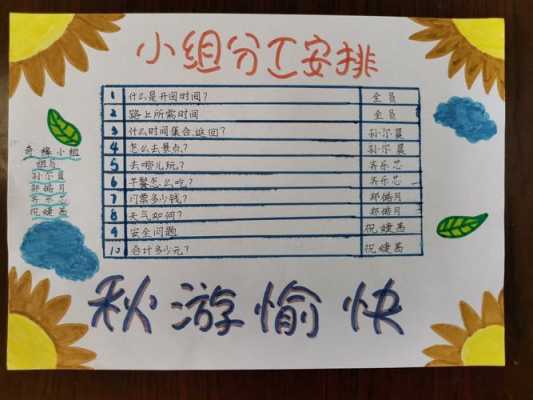 小组分工安排
1 什么是开园时间? 全员
2 路上所需时间 全员
3 什么时间集合,返回? 孙尔晨
4 怎么去景点? 孙尔晨
5 去哪儿玩? 齐乐芯
6 午餐怎么吃? 齐乐芯
7 门票多少钱? 郑皓月
8 天气如何? 郑皓月
9 安全问题 祝婕茜
10 合计多少元? 祝婕茜
奇缘小组
组员
孙尔晨
郑皓月
齐乐芯
祝婕茜
秋游愉快